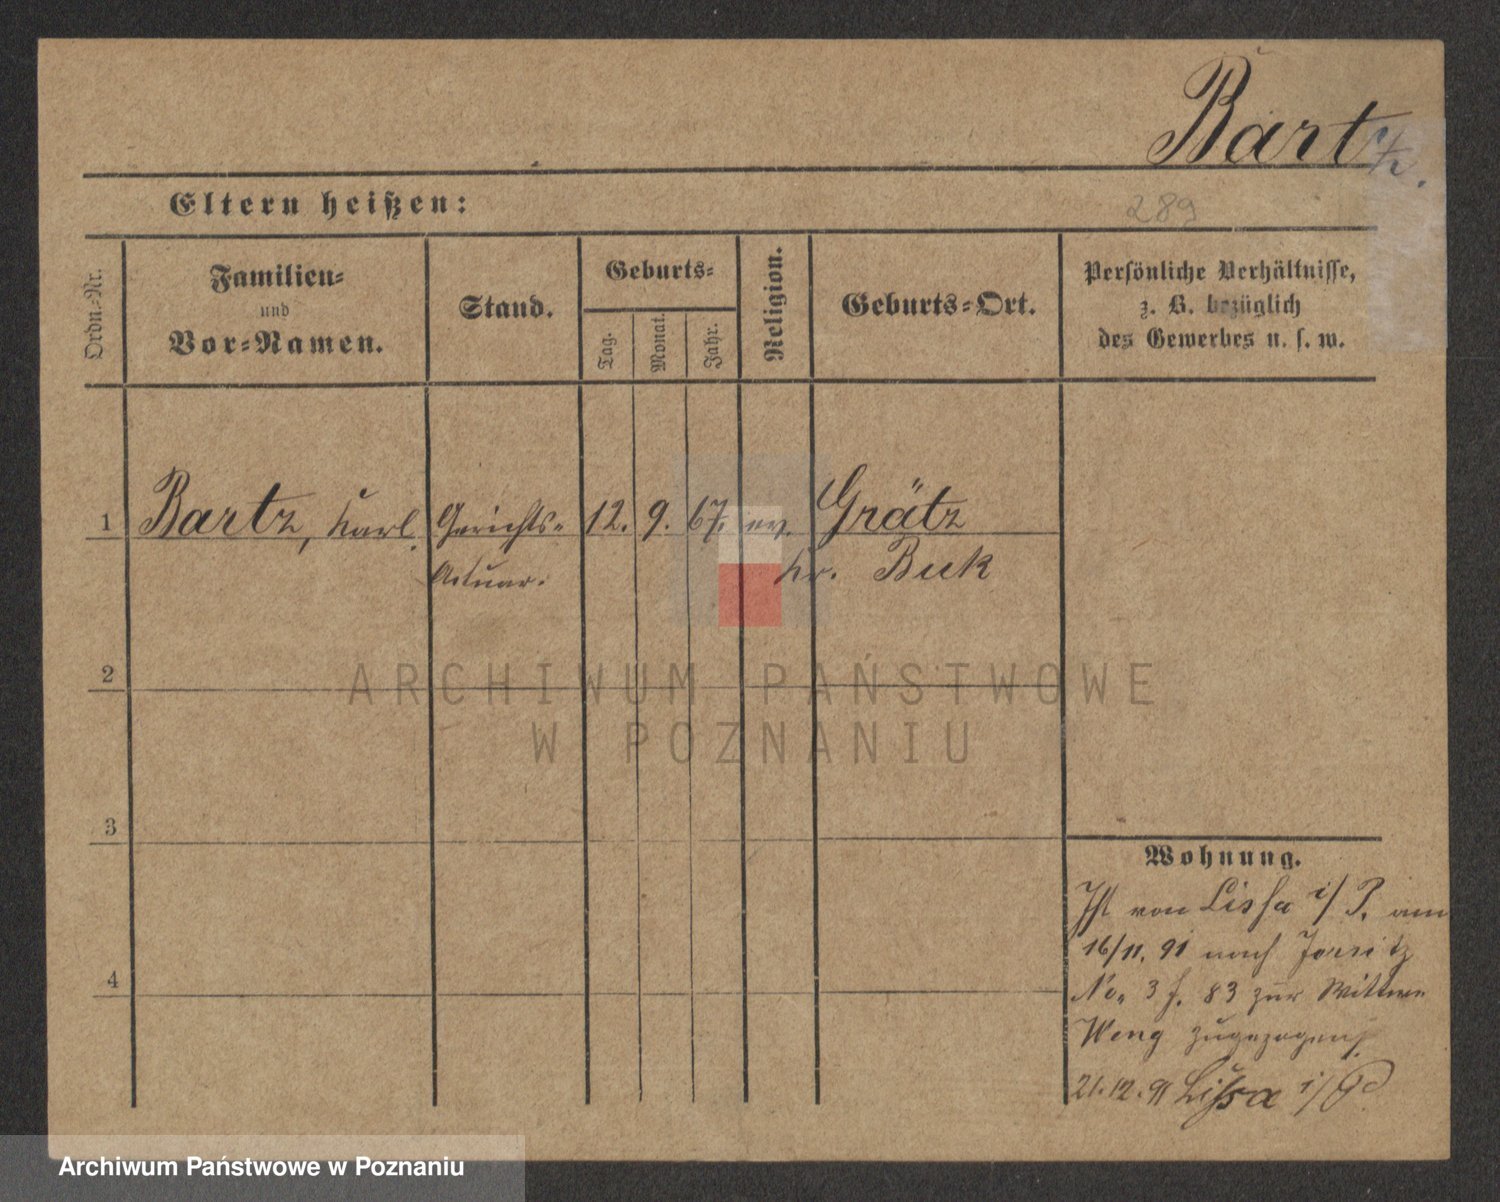 Bartz.
Eltern heißen:
289
Ordn.-Nr.
Familien-
und
Vor-Namen.
Stand.
Geburts-
Tag.
Monat.
Jahr.
Religion.
Geburts-Ort.
Persönliche Verhältnisse,
z. B. bezüglich
des Gewerbes u. s. w.
1 Bartz, Karl. Gerichts- 12. 9. 67. ev. Grätz
Actuar. Kr. Buk
2
3
4
Wohnung.
Ist von Lissa i/P. am
16/11. 91 nach
No. 3 f. 83 zur Wittwe
Weng zugezogen
21.12.91 Lissa i/P
ARCHIWUM PAŃSTWOWE
W POZNANIU
Archiwum Państwowe w Poznaniu